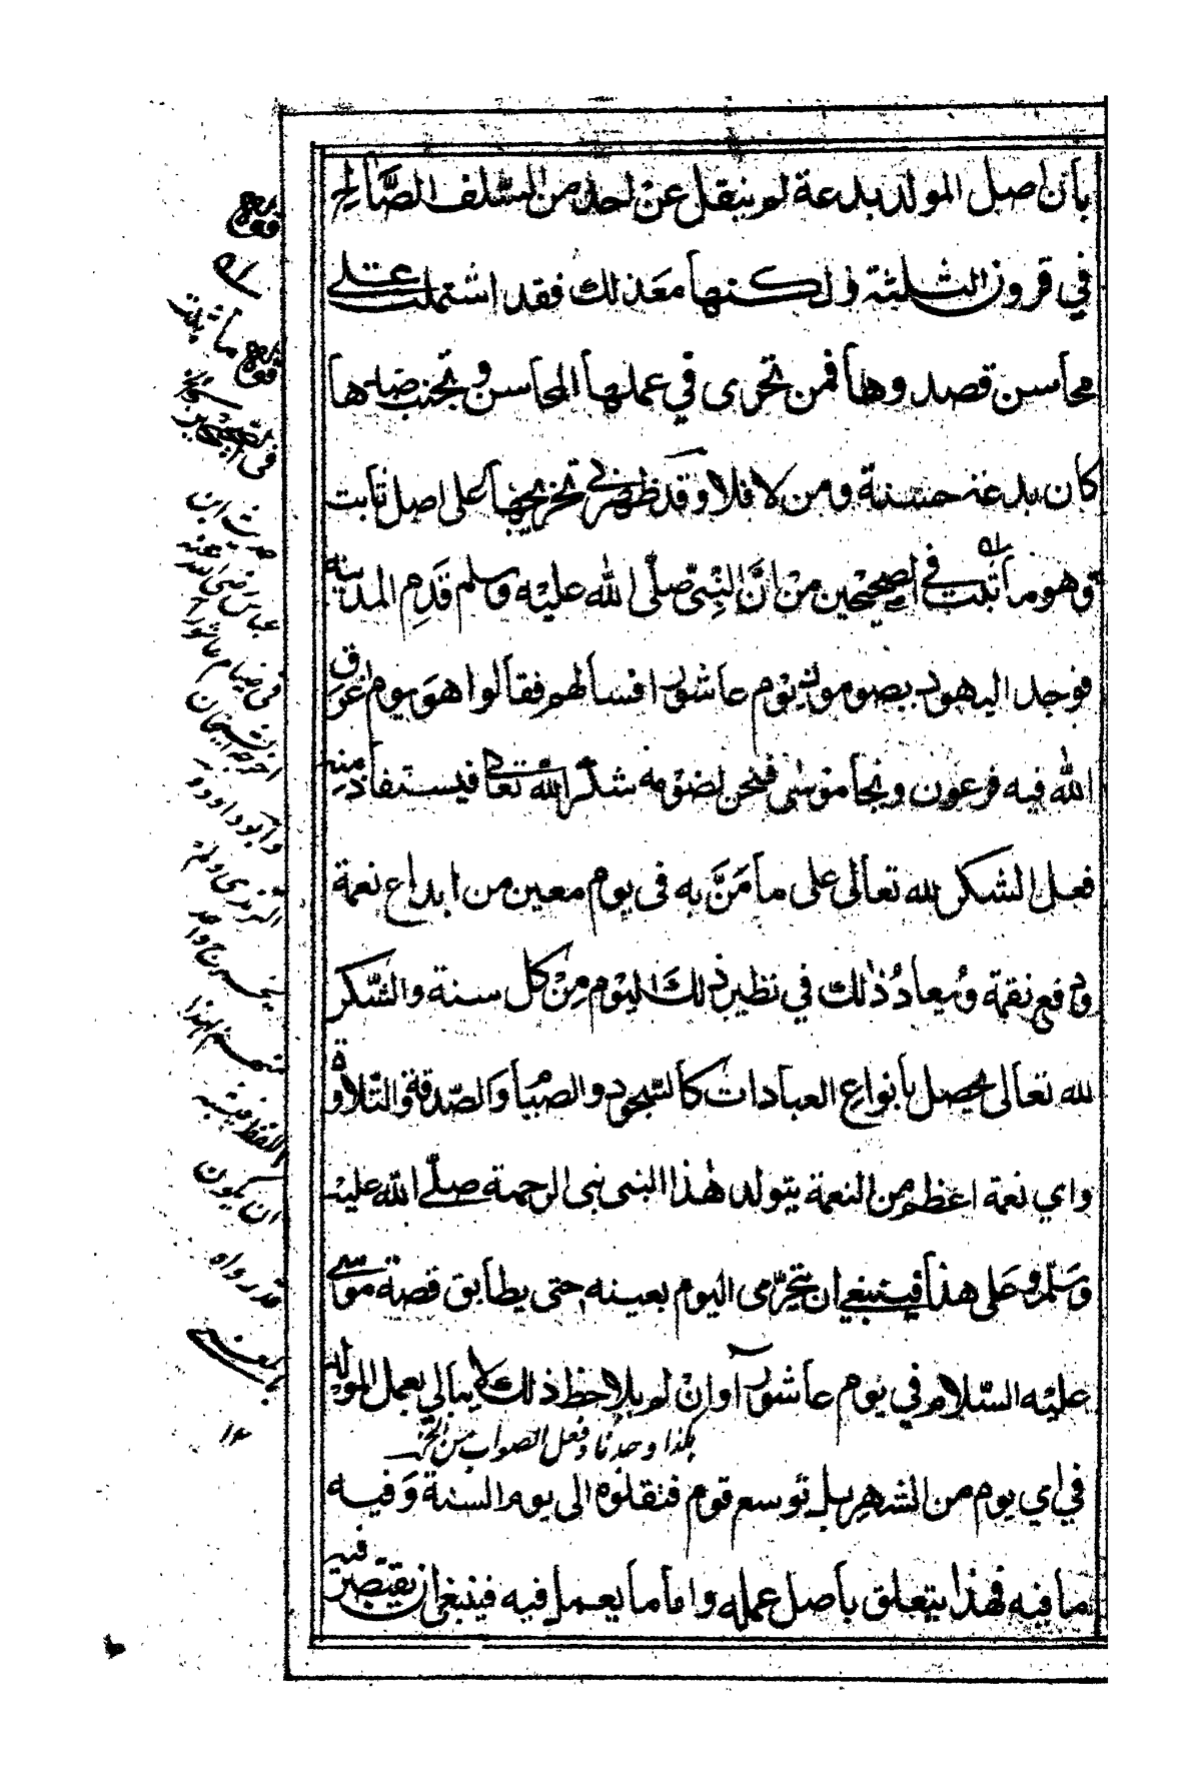 بأن اصل المولد بدعة لم ينقل عن احد من السلف الصّالح
في قرون الثلثة ولكنها مع ذلك فقد اشتملت على
محاسن قصد وها فمن تحرى في عملها المحاسن وتجنب ضدها
كان بدعة حسنة ومن لا فلا وقد ظهر لي تخريجها على اصل ثابت
وهو ما ثبت في الصحيحين من انَّ النبيّ صلّى الله عليه وسلم قَدِم المدينة
فوجد اليهود يصومون يوم عاشورا فسألهم فقالوا هو يوم غرق
الله فيه فرعون ونجا موسٰى فنحن نصومه شكرا لله تعالى فيستفاد منه
فعل الشكر لله تعالى على ما مَنَّ به فى يوم معين من ابداع نعمة
ودفع نقمة ويُعادُ ذٰلك في نظير ذٰلك اليوم مِنْ كل سنة والشّكر
لله تعالى يحصل بأنواع العبادات كالسّجود والصيام والصّدقة والتّلاوة
واي نعمة اعظم من النعمة بتولد هٰذا النبى نبى الرحمة صلّى الله عليه
وسلّم وعلى هذا فينبغي ان يتحرّى اليوم بعينه حتى يطابق قصة موسى
عليه السّلام في يوم عاشورآ وانْ لم يلاحظ ذلك لا يبالي بعمل المولد
هكذا وجدنا ولعل الصواب من الخ
في اي يوم من الشهر بل توسع قوم فنقلوه الى يوم السنة وفيه
ما فيه فهذا يتعلق بأصل عمله واما ما يعمل فيه فينبغي ان يقتصر فيه
قوله
ما ثبت
قوله
فى الصحيحين
حديث ابن
عباس رضى الله عنه
فى صيام عاشورا
اخرجه الشيخان
وابو داود و
ان يكون
قد رواه
بالمعنى
١٢